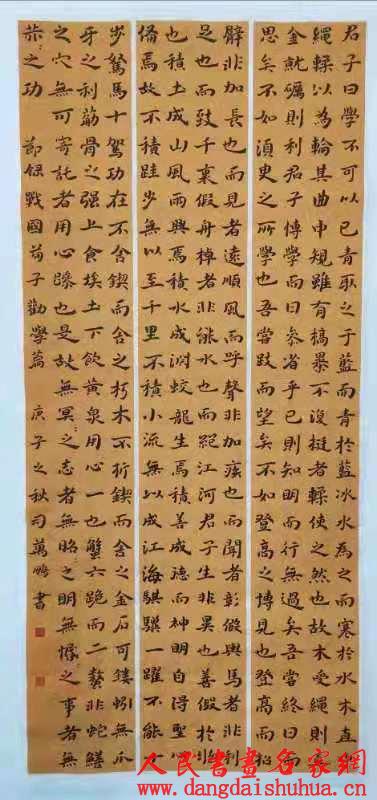 君子曰學不可以已青取之于藍而青於藍冰水為之而寒於水木直
繩輮以為輪其曲中規雖有槁暴不復挺者輮使之然也故木受繩則
金就礪則利君子博學而日參省乎已則知明而行無過矣吾嘗終日而
思矣不如須臾之所學也吾嘗跂而望矣不如登高之博見也登高而招
臂非加長也而見者遠順風而呼聲非加疾也而聞者彰假輿馬者非利
足也而致千里假舟楫者非能水也而絕江河君子生非異也善假於
也積土成山風雨興焉積水成淵蛟龍生焉積善成德而神明自得聖心
備焉故不積跬步無以至千里不積小流無以成江海騏驥一躍不能十
步駑馬十駕功在不舍鍥而舍之朽木不折鍥而舍之金石可鏤蚓無爪
牙之利筋骨之强上食埃土下飲黃泉用心一也蟹六跪而二螯非蛇鱔
之穴無可寄託者用心躁也是故無冥〻之志者無昭〻之明無惛〻之事者無
〻之功 節録戰國荀子勸學篇 庚子之秋司萬鵬書
人民書畫名家網
www.dangdaishuhua.cn